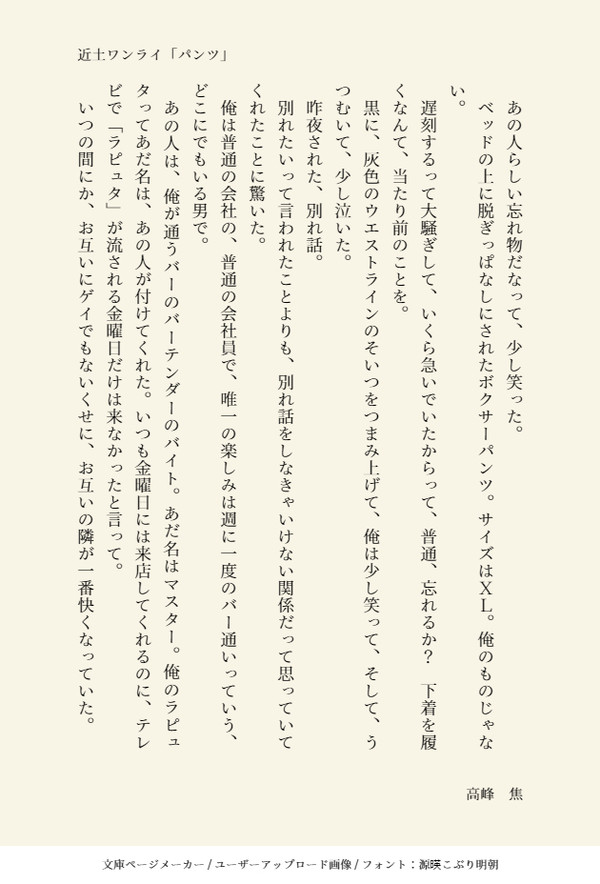 近土ワンライ「パンツ」
あの人らしい忘れ物だなって、少し笑った。
ベッドの上に脱ぎっぱなしにされたボクサーパンツ。サイズはＸＬ。俺のものじゃな
い。
遅刻するって大騒ぎして、いくら急いでいたからって、普通、忘れるか？　下着を履
くなんて、当たり前のことを。
黒に、灰色のウエストラインのそいつをつまみ上げて、俺は少し笑って、そして、う
つむいて、少し泣いた。
昨夜された、別れ話。
別れたいって言われたことよりも、別れ話をしなきゃいけない関係だって思っていて
くれたことに驚いた。
俺は普通の会社の、普通の会社員で、唯一の楽しみは週に一度のバー通いっていう、
どこにでもいる男で。
あの人は、俺が通うバーのバーテンダーのバイト。あだ名はマスター。俺のラピュ
タってあだ名は、あの人が付けてくれた。いつも金曜日には来店してくれるのに、テレ
ビで「ラピュタ」が流される金曜日だけは来なかったと言って。
いつの間にか、お互いにゲイでもないくせに、お互いの隣が一番快くなっていた。
高峰　焦
文庫ページメーカー / ユーザーアップロード画像 / フォント：源暎こぶり明朝